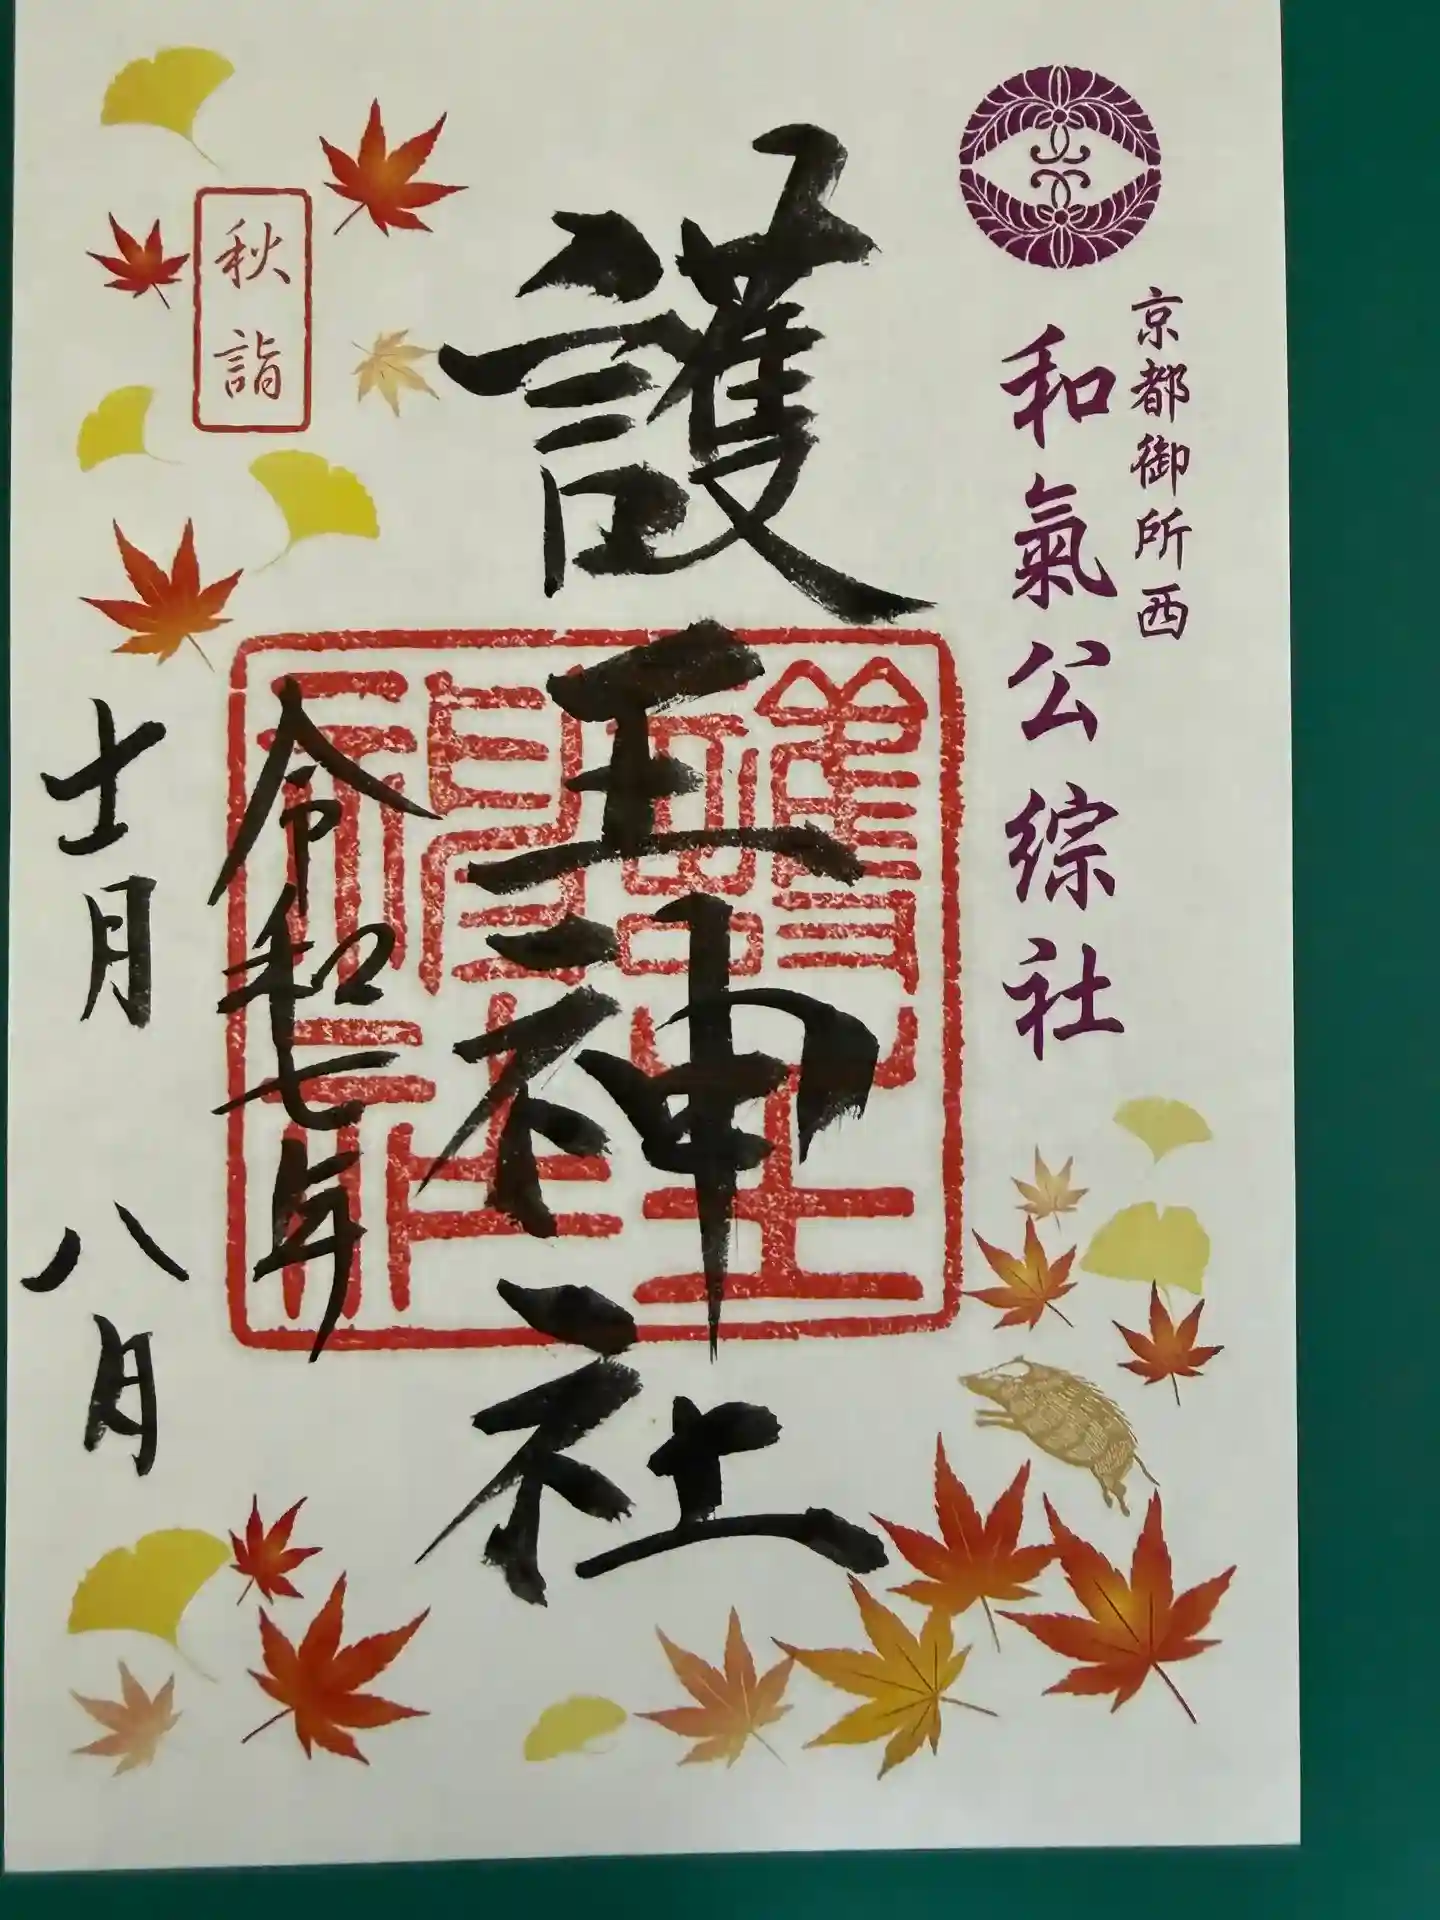 京都御所西
和氣公綜社
護王神社
護王神社
令和七年
十一月八日
秋詣